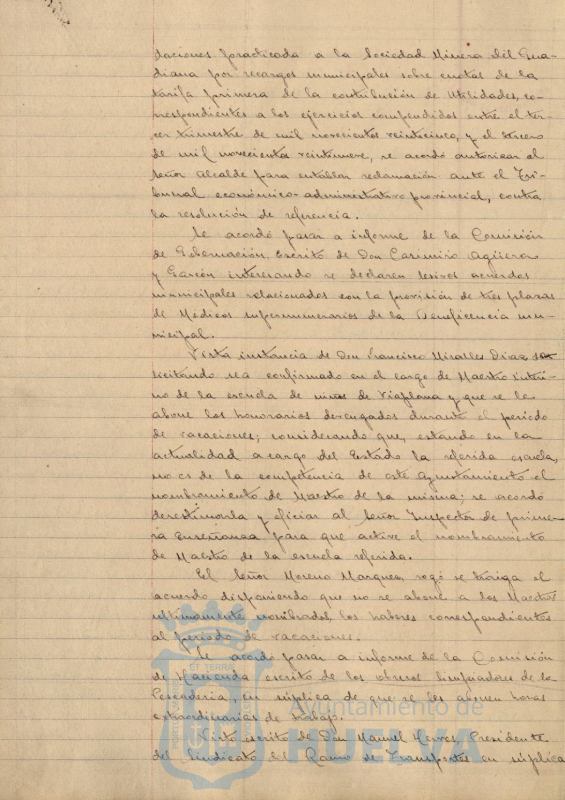 daciones practicada a la Sociedad Minera del Gua-
diana por recargos municipales sobre cuotas de la
tarifa primera de la contribución de Utilidades, co-
rrespondientes a los ejercicios comprendidos entre el ter-
cer trimestre de mil novecientos veinticinco, y el tercero
de mil novecientos veintinueve, se acordó autorizar al
Señor Alcalde para entablar reclamación ante el Tri-
bunal económico-administrativo provincial, contra
la resolución de referencia.
Se acordó pasar a informe de la Comisión
de Gobernación, escrito de Don Casimiro Agüera
y Garcón interesando se declaren lesivos acuerdos
municipales relacionados con la provisión de tres plazas
de Médicos supernumerarios de la Beneficencia mu-
nicipal.
Vista instancia de Don Francisco Miralles Diaz so-
licitando sea confirmado en el cargo de Maestro interi-
no de la escuela de niños de Viaplana y que se le
abone los honorarios devengados durante el periodo
de vacaciones; considerando que, estando en la
actualidad a cargo del Estado la referida escuela,
no es de la competencia de este Ayuntamiento el
nombramiento de Maestro de la misma; se acordó
desestimarla y oficiar al Señor Inspector de prime-
ra Enseñanza para que active el nombramiento
de Maestro de la escuela referida.
El Señor Moreno Marquez, rogó se traiga el
acuerdo disponiendo que no se abone a los Maestros
ultimamente nombrados, los haberes correspondientes
al periodo de vacaciones.
Se acordó pasar a informe de la Comisión
de Hacienda escrito de los obreros limpiadores de la
Pescaderia, en súplica de que se les abonen horas
extraordinarias de trabajo.
Visto escrito de Don Manuel Presidente
del Sindicato del Ramo de Transportes en súplica
Ayuntamiento de
HUELVA